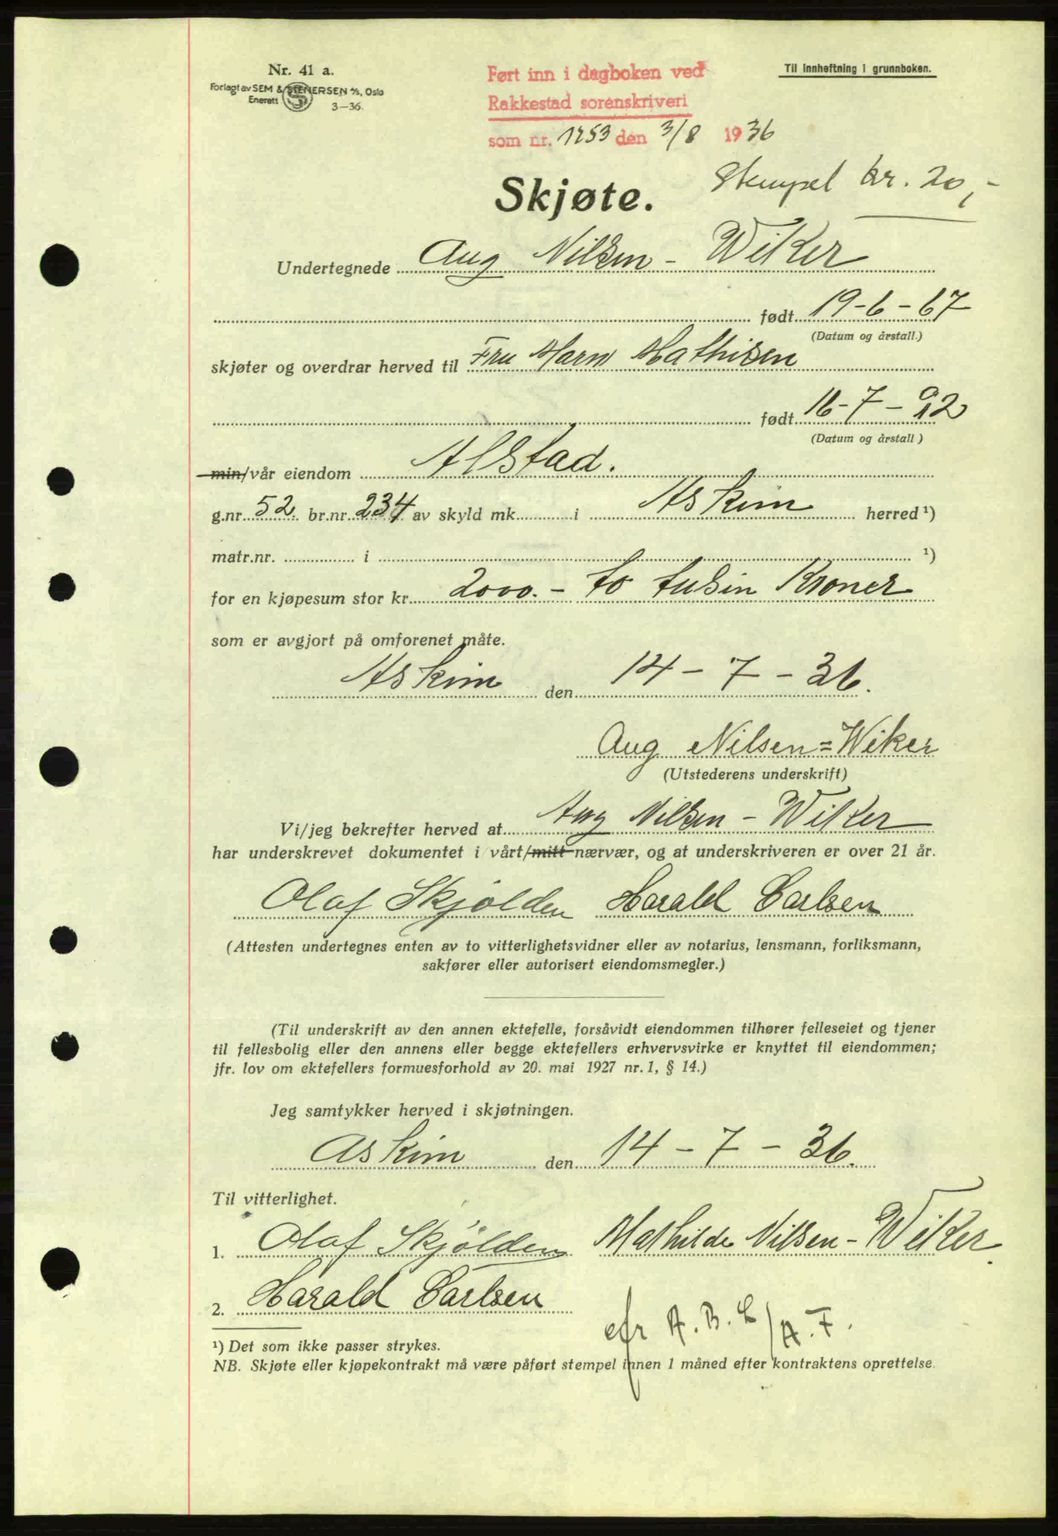 Nr. 41 a.
Forlagt av SEM & STENERSEN A/S, Oslo
Enerett 3-36.
Ført inn i dagboken ved
Rakkestad sorenskriveri
som nr. 1253 den 3/8 1936
Til innheftning i grunnboken.
Stempel kr. 20,-
Skjøte.
Undertegnede Aug Nilsen - Wiker
født 19-6-67
(Datum og årstall.)
skjøter og overdrar herved til Fru Marn Mathisen
født 16-7-92
(Datum og årstall)
min/vår eiendom Alstad.
g.nr. 52 br.nr. 234 av skyld mk. i Askim herred ¹)
matr.nr. i ¹)
for en kjøpesum stor kr. 2000.- to tusin Kroner
som er avgjort på omforenet måte.
Askim den 14-7-36.
Aug Nilsen=Wiker
(Utstederens underskrift)
Vi/jeg bekrefter herved at Aug Nilsen - Wiker
har underskrevet dokumentet i vårt/mitt nærvær, og at underskriveren er over 21 år.
Olaf Skjølden Harald Carlsen
(Attesten undertegnes enten av to vitterlighetsvidner eller av notarius, lensmann, forliksmann,
sakfører eller autorisert eiendomsmegler.)
(Til underskrift av den annen ektefelle, forsåvidt eiendommen tilhører felleseiet og tjener
til fellesbolig eller den annens eller begge ektefellers erhvervsvirke er knyttet til eiendommen;
jfr. lov om ektefellers formuesforhold av 20. mai 1927 nr. 1, § 14.)
Jeg samtykker herved i skjøtningen.
Askim den 14-7-36.
Til vitterlighet.
1. Olaf Skjølden Mathilde Nilsen - Wiker
2. Harald Carlsen
efr A.B.L/A.F.
¹) Det som ikke passer strykes.
NB. Skjøte eller kjøpekontrakt må være påført stempel innen 1 måned efter kontraktens oprettelse.